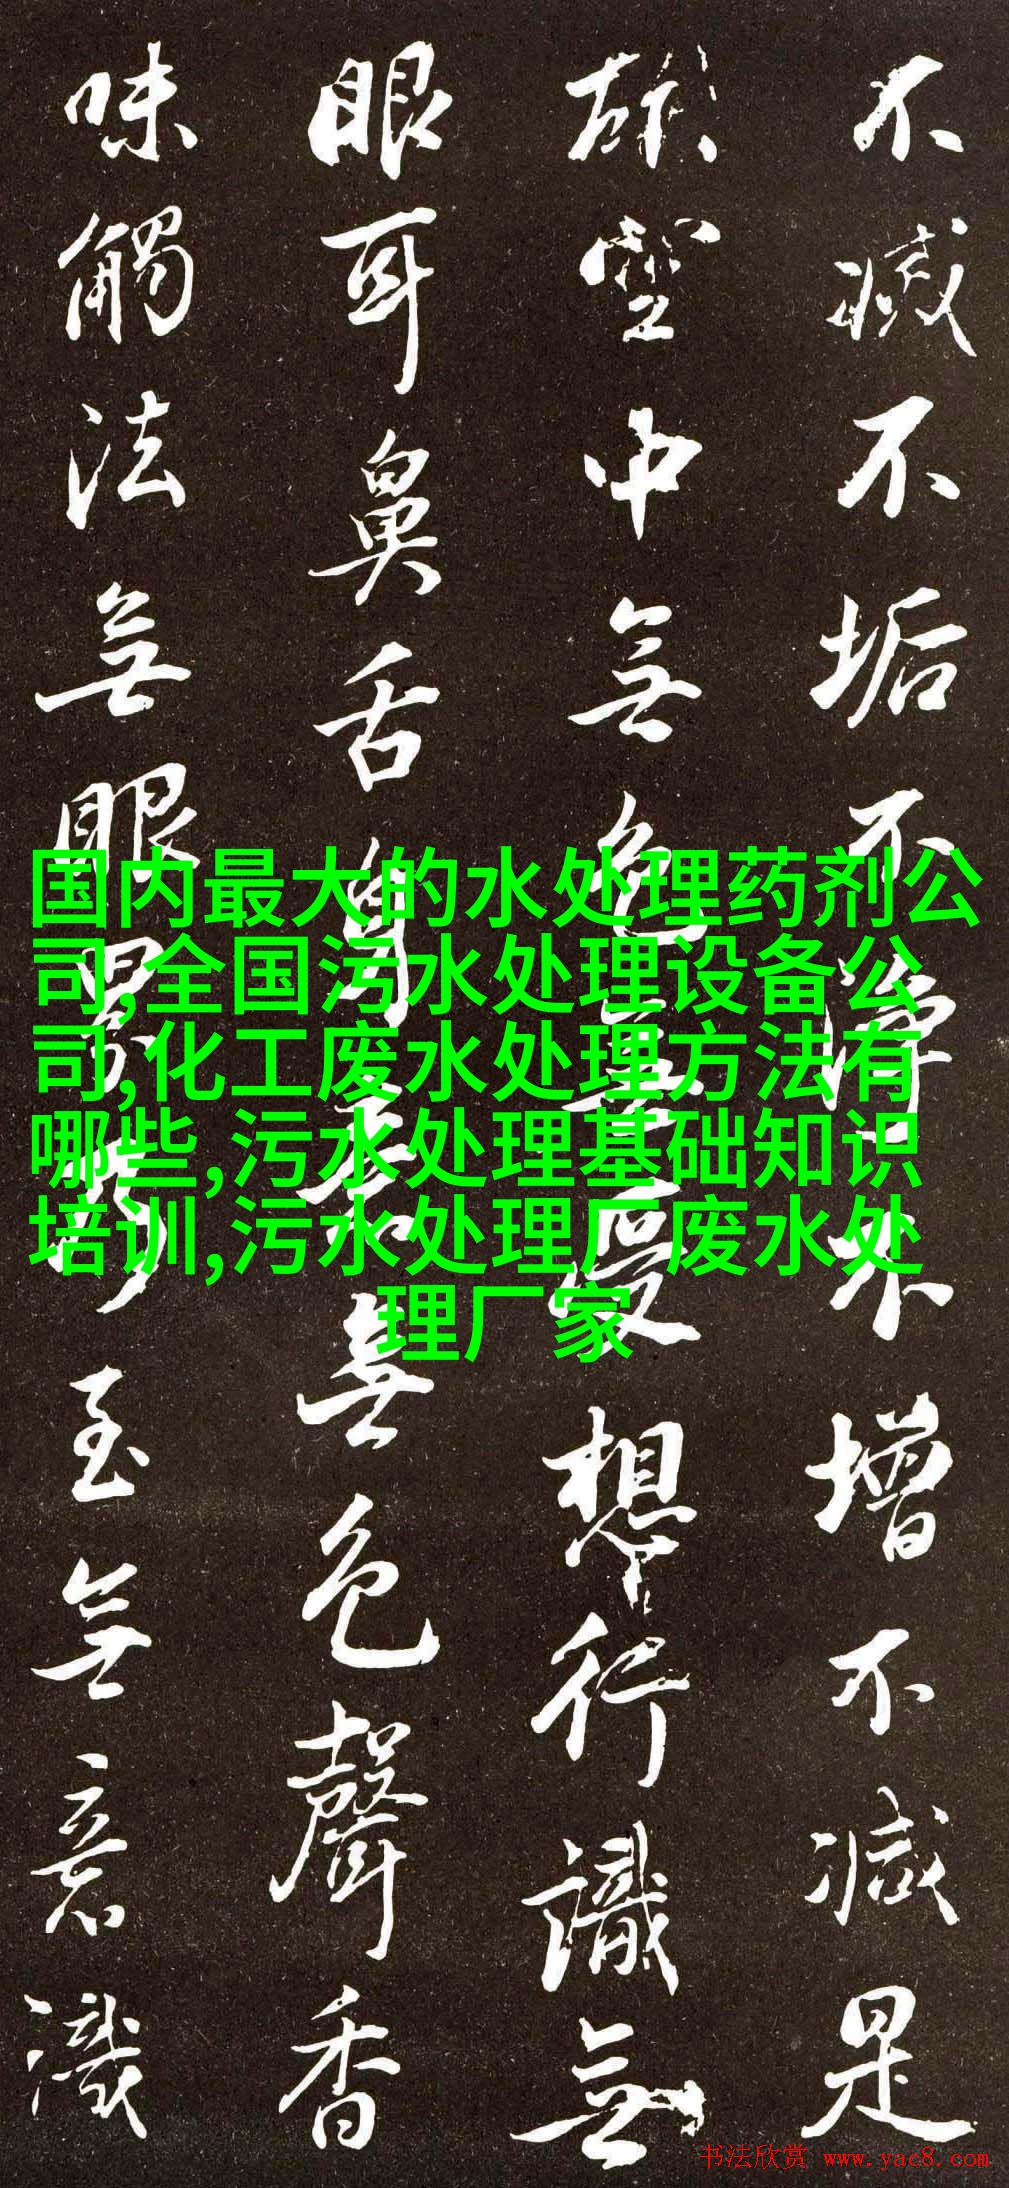 不滅不垢不淨不增不減是
故空中無色無受想行識無
眼耳鼻舌身意無色聲香
味觸法無眼界乃至無意識
国内最大的水处理药剂公
司,全国污水处理设备公
司,化工废水处理方法有
哪些,污水处理基础知识
培训,污水处理厂废水处
理厂家
书法欣赏 www.yac8.com